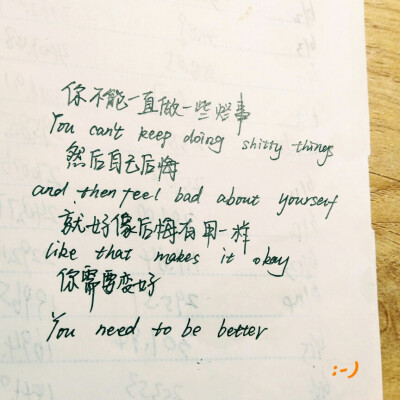 你不能一直做一些烂事
You can't keep doing shitty things
然后自己后悔
and then feel bad about yourself
就好像后悔有用一样
like that makes it okay
你需要变好
You need to be better
:-)